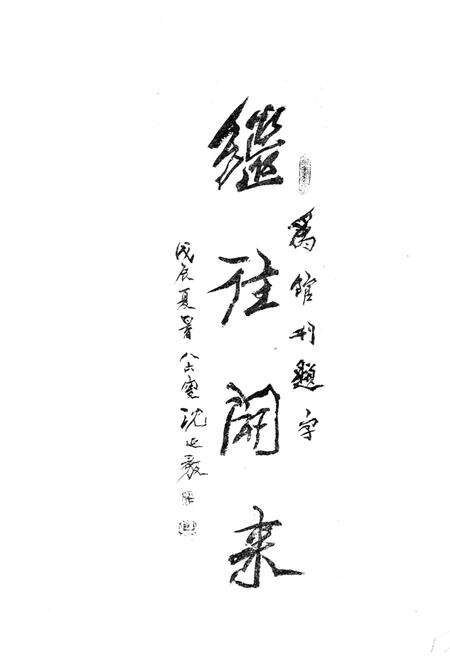 爲館刊題字
繼往開来
戊辰夏暑八六叟沈延毅